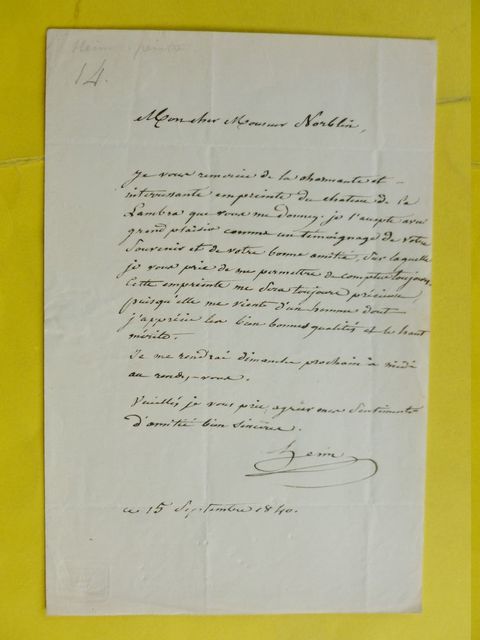 Heim peintre
14.
Mon cher Monsieur Norblin,
Je vous remercie de la charmante et
interressante empreinte du chateau de la
Lambra que vous me donnez; je l'accepte avec
grand plaisir comme un témoignage de votre
Souvenir et de votre bonne amitié, sur laquelle
je vous prie de me permettre de compter toujours,
Cette empreinte me sera toujours précieuse
puisqu'elle me vient d'un homme dont
j'apprécie les bien bonnes qualités et le haut
mérite.
Je me rendrai dimanche prochain à midi
au rendez-vous.
Veuillés, je vous prie, agréer mes Sentiments
d'amitié bien sincère.
heim
ce 15 Septembre 1840.